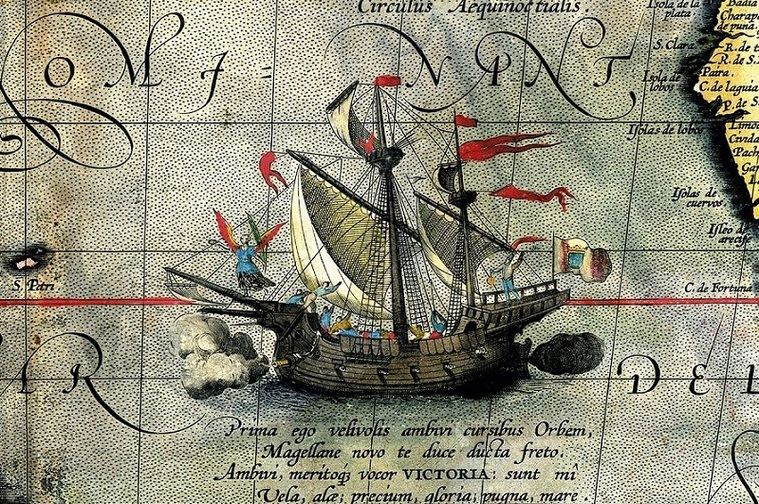 Circulus Aequinoctialis.
Isola de la
plata
Charapa
de puna.
S. Clara
R. de t
R. de S.
Paira.
Isola de
lobos
C. de laguia
p. de S.
Islolas de lobos
Limo
Civida
Pach
OMI = NANT,
Isolas de
cuervos
Isleo de
arecife
S. Petri
C. de Fortuna
DEL
Prima ego velivolis ambivi cursibus Orbem,
Magellane novo te duce ducta freto.
Ambivi, meritoq; vocor VICTORIA: sunt mî
Vela, alæ; precium, gloria; pugna, mare.